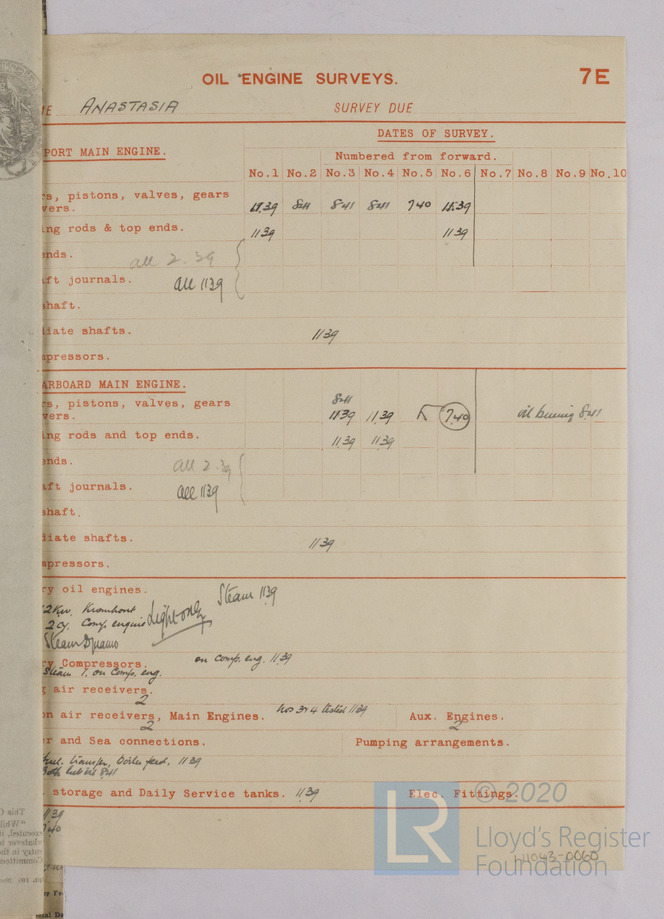 OIL ENGINE SURVEYS. 7E
ANASTASIA SURVEY DUE
DATES OF SURVEY.
PORT MAIN ENGINE. Numbered from forward.
No.1 No.2 No.3 No.4 No.5 No.6 No.7 No.8 No.9 No.10
s, pistons, valves, gears
vers. 11.39 8.41 8.41 8.41 7.40 11.39
ing rods & top ends. 11.39 11.39
ends. all 2.39
ft journals. all 11.39
shaft.
diate shafts. 11.39
mpressors.
ARBOARD MAIN ENGINE.
8.41
s, pistons, valves, gears
vers. 11.39 11.39 7.40 8.41
ing rods and top ends. 11.39 11.39
ends. all 2.39
ft journals. all 11.39
shaft.
diate shafts. 11.39
mpressors.
ry oil engines. Steam 11.39
2 Kw. Kromhout Light only
2 cy. Comp. engine
Steam Dynamo
ry Compressors. on comp. eng. 11.39
Steam 1. on Comp. eng.
g air receivers.
2
on air receivers, Main Engines. Nos 3 & 4 tested 11.39 Aux. Engines.
2 2
er and Sea connections. Pumping arrangements.
fuel transfer, boiler feed, 11.39
8.41
storage and Daily Service tanks. 11.39 Elec. Fittings.
11.39
7.40
© 2020
LR
Lloyd's Register
Foundation
W1043-0060